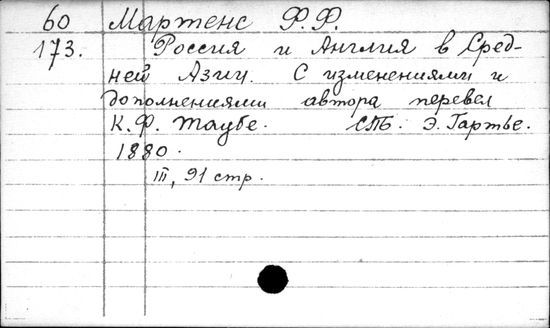 60 Мартенс Ф.Ф.
173. Россия и Англия в Сред-
ней Азии. С изменениями и
дополнениями автора перевел
К.Ф. Таубе. СПБ. Э. Гартье.
1880.
III, 91 стр.